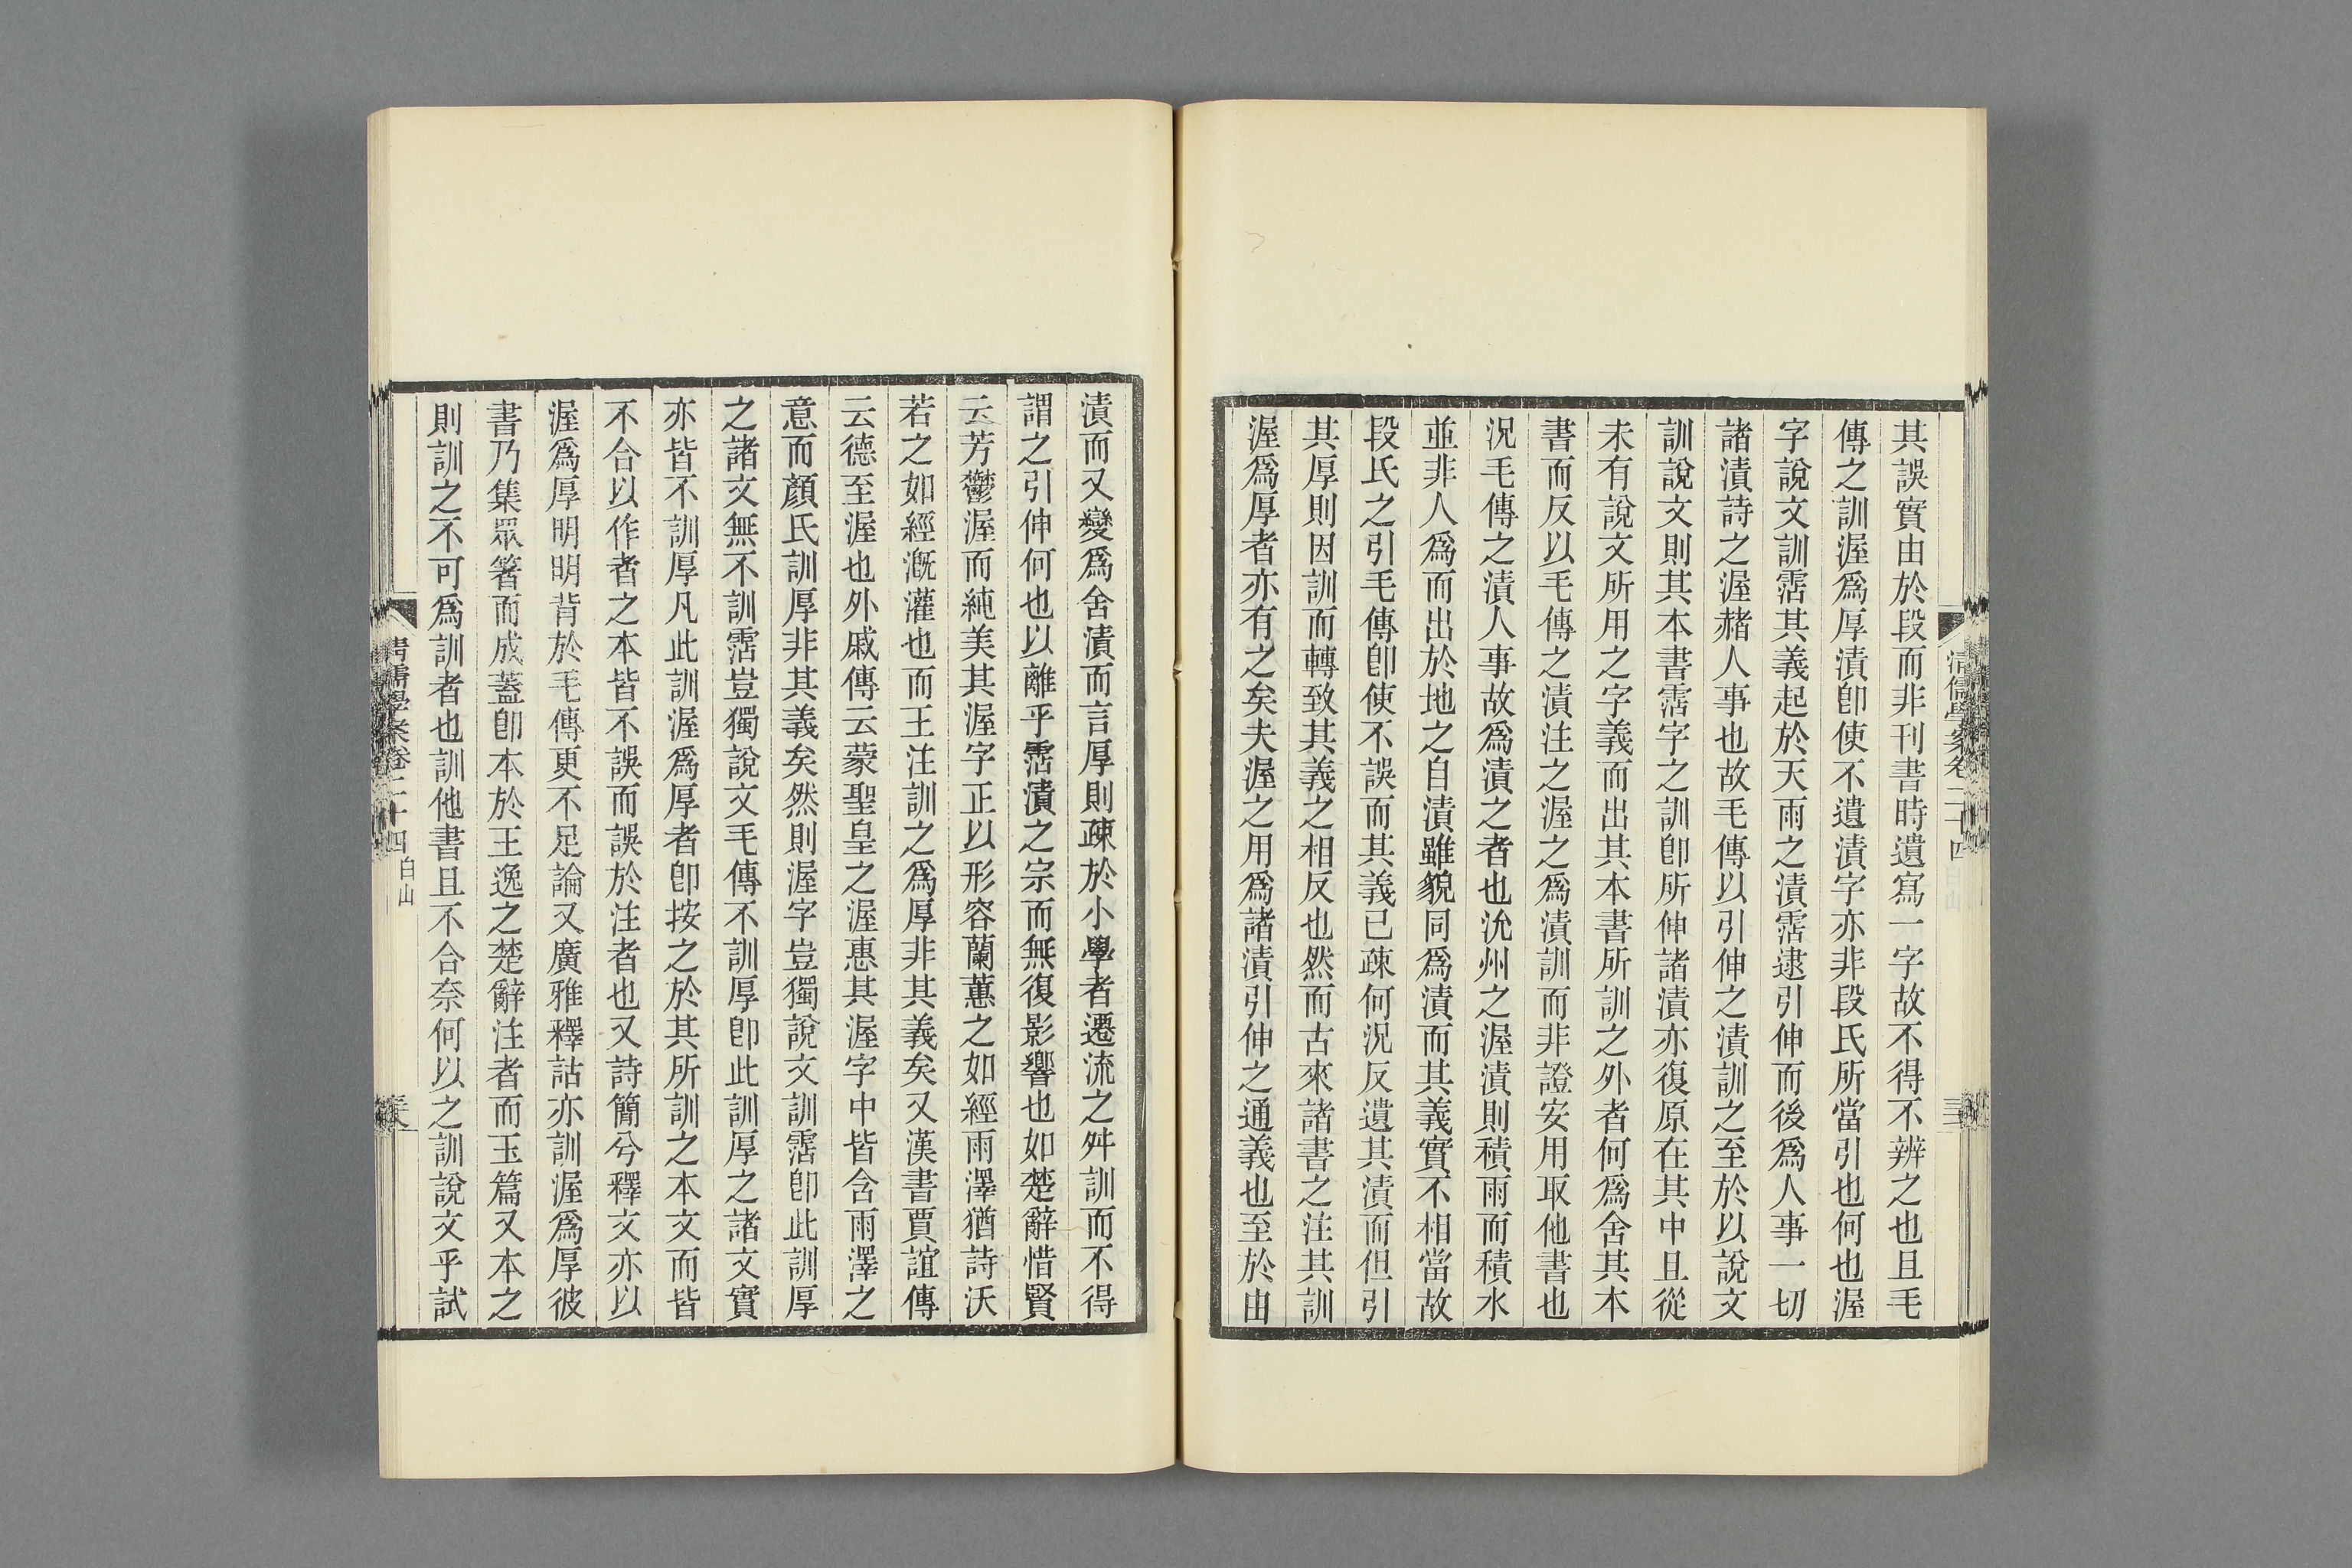 其誤實由於段而非刊書時遺寫一字故不得不辨之也且毛
傳之訓渥爲厚漬卽使不遺漬字亦非段氏所當引也何也渥
字說文訓霑其義起於天雨之漬霑逮引伸而後爲人事一切
諸漬詩之渥赭人事也故毛傳以引伸之漬訓之至於以說文
訓說文則其本書霑字之訓卽所伸諸漬亦復原在其中且從
未有說文所用之字義而出其本書所訓之外者何爲舍其本
書而反以毛傳之漬注之渥之爲漬訓而非證安用取他書也
況毛傳之漬人事故爲漬之者也沇州之渥漬則積雨而積水
並非人爲而出於地之自漬雖貌同爲漬而其義實不相當故
段氏之引毛傳卽使不誤而其義已疎何況反遺其漬而但引
其厚則因訓而轉致其義之相反也然而古來諸書之注其訓
渥爲厚者亦有之矣夫渥之用爲諸漬引伸之通義也至於由
清儒學案卷二十四
漬而又變爲舍漬而言厚則疎於小學者遷流之舛訓而不得
謂之引伸何也以離乎霑漬之宗而無復影響也如楚辭惜賢
云芳鬱渥而純美其渥字正以形容蘭蕙之如經雨澤猶詩沃
若之如經漑灌也而王注訓之爲厚非其義矣又漢書賈誼傳
云德至渥也外戚傳云蒙聖皇之渥惠其渥字中皆含雨澤之
意而顏氏訓厚非其義矣然則渥字豈獨說文訓霑卽此訓厚
之諸文無不訓霑豈獨說文毛傳不訓厚卽此訓厚之諸文實
亦皆不訓厚凡此訓渥爲厚者卽按之於其所訓之本文而皆
不合以作者之本皆不誤而誤於注者也又詩簡兮釋文亦以
渥爲厚明明背於毛傳更不足論又廣雅釋詁亦訓渥爲厚彼
書乃集眾箸而成蓋卽本於王逸之楚辭注者而玉篇又本之
則訓之不可爲訓者也訓他書且不合奈何以之訓說文乎試
清儒學案卷二十四 白山